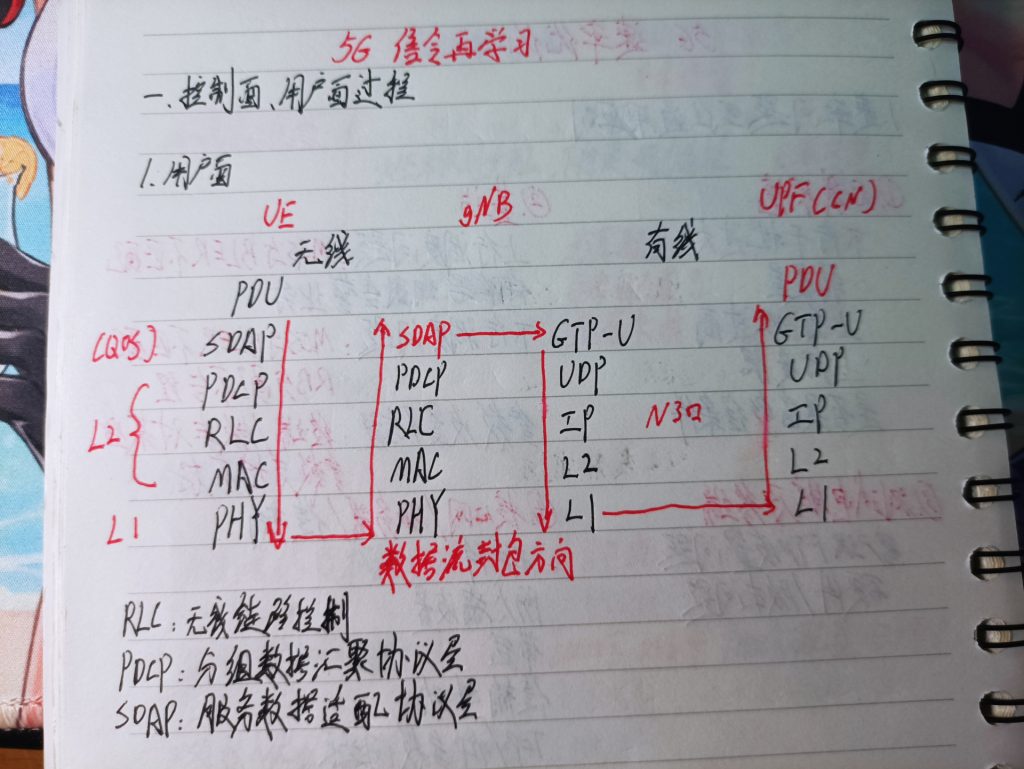 5G 信令再学习
一、控制面、用户面过程
1.用户面
UE gNB UPF(CN)
无线 有线
PDU PDU
(QOS) SDAP SDAP GTP-U GTP-U
PDCP PDCP UDP UDP
L2 RLC RLC IP N3口 IP
MAC MAC L2 L2
L1 PHY PHY L1 L1
数据流封包方向
RLC：无线链路控制
PDCP：分组数据汇聚协议层
SDAP：服务数据适配协议层